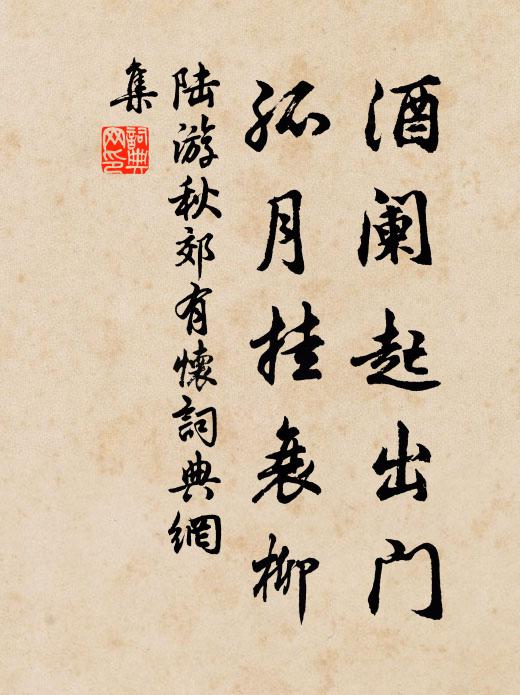 酒阑起出门
孤月挂衰柳
陆游秋郊有懷詞典網
集
詞典
网印